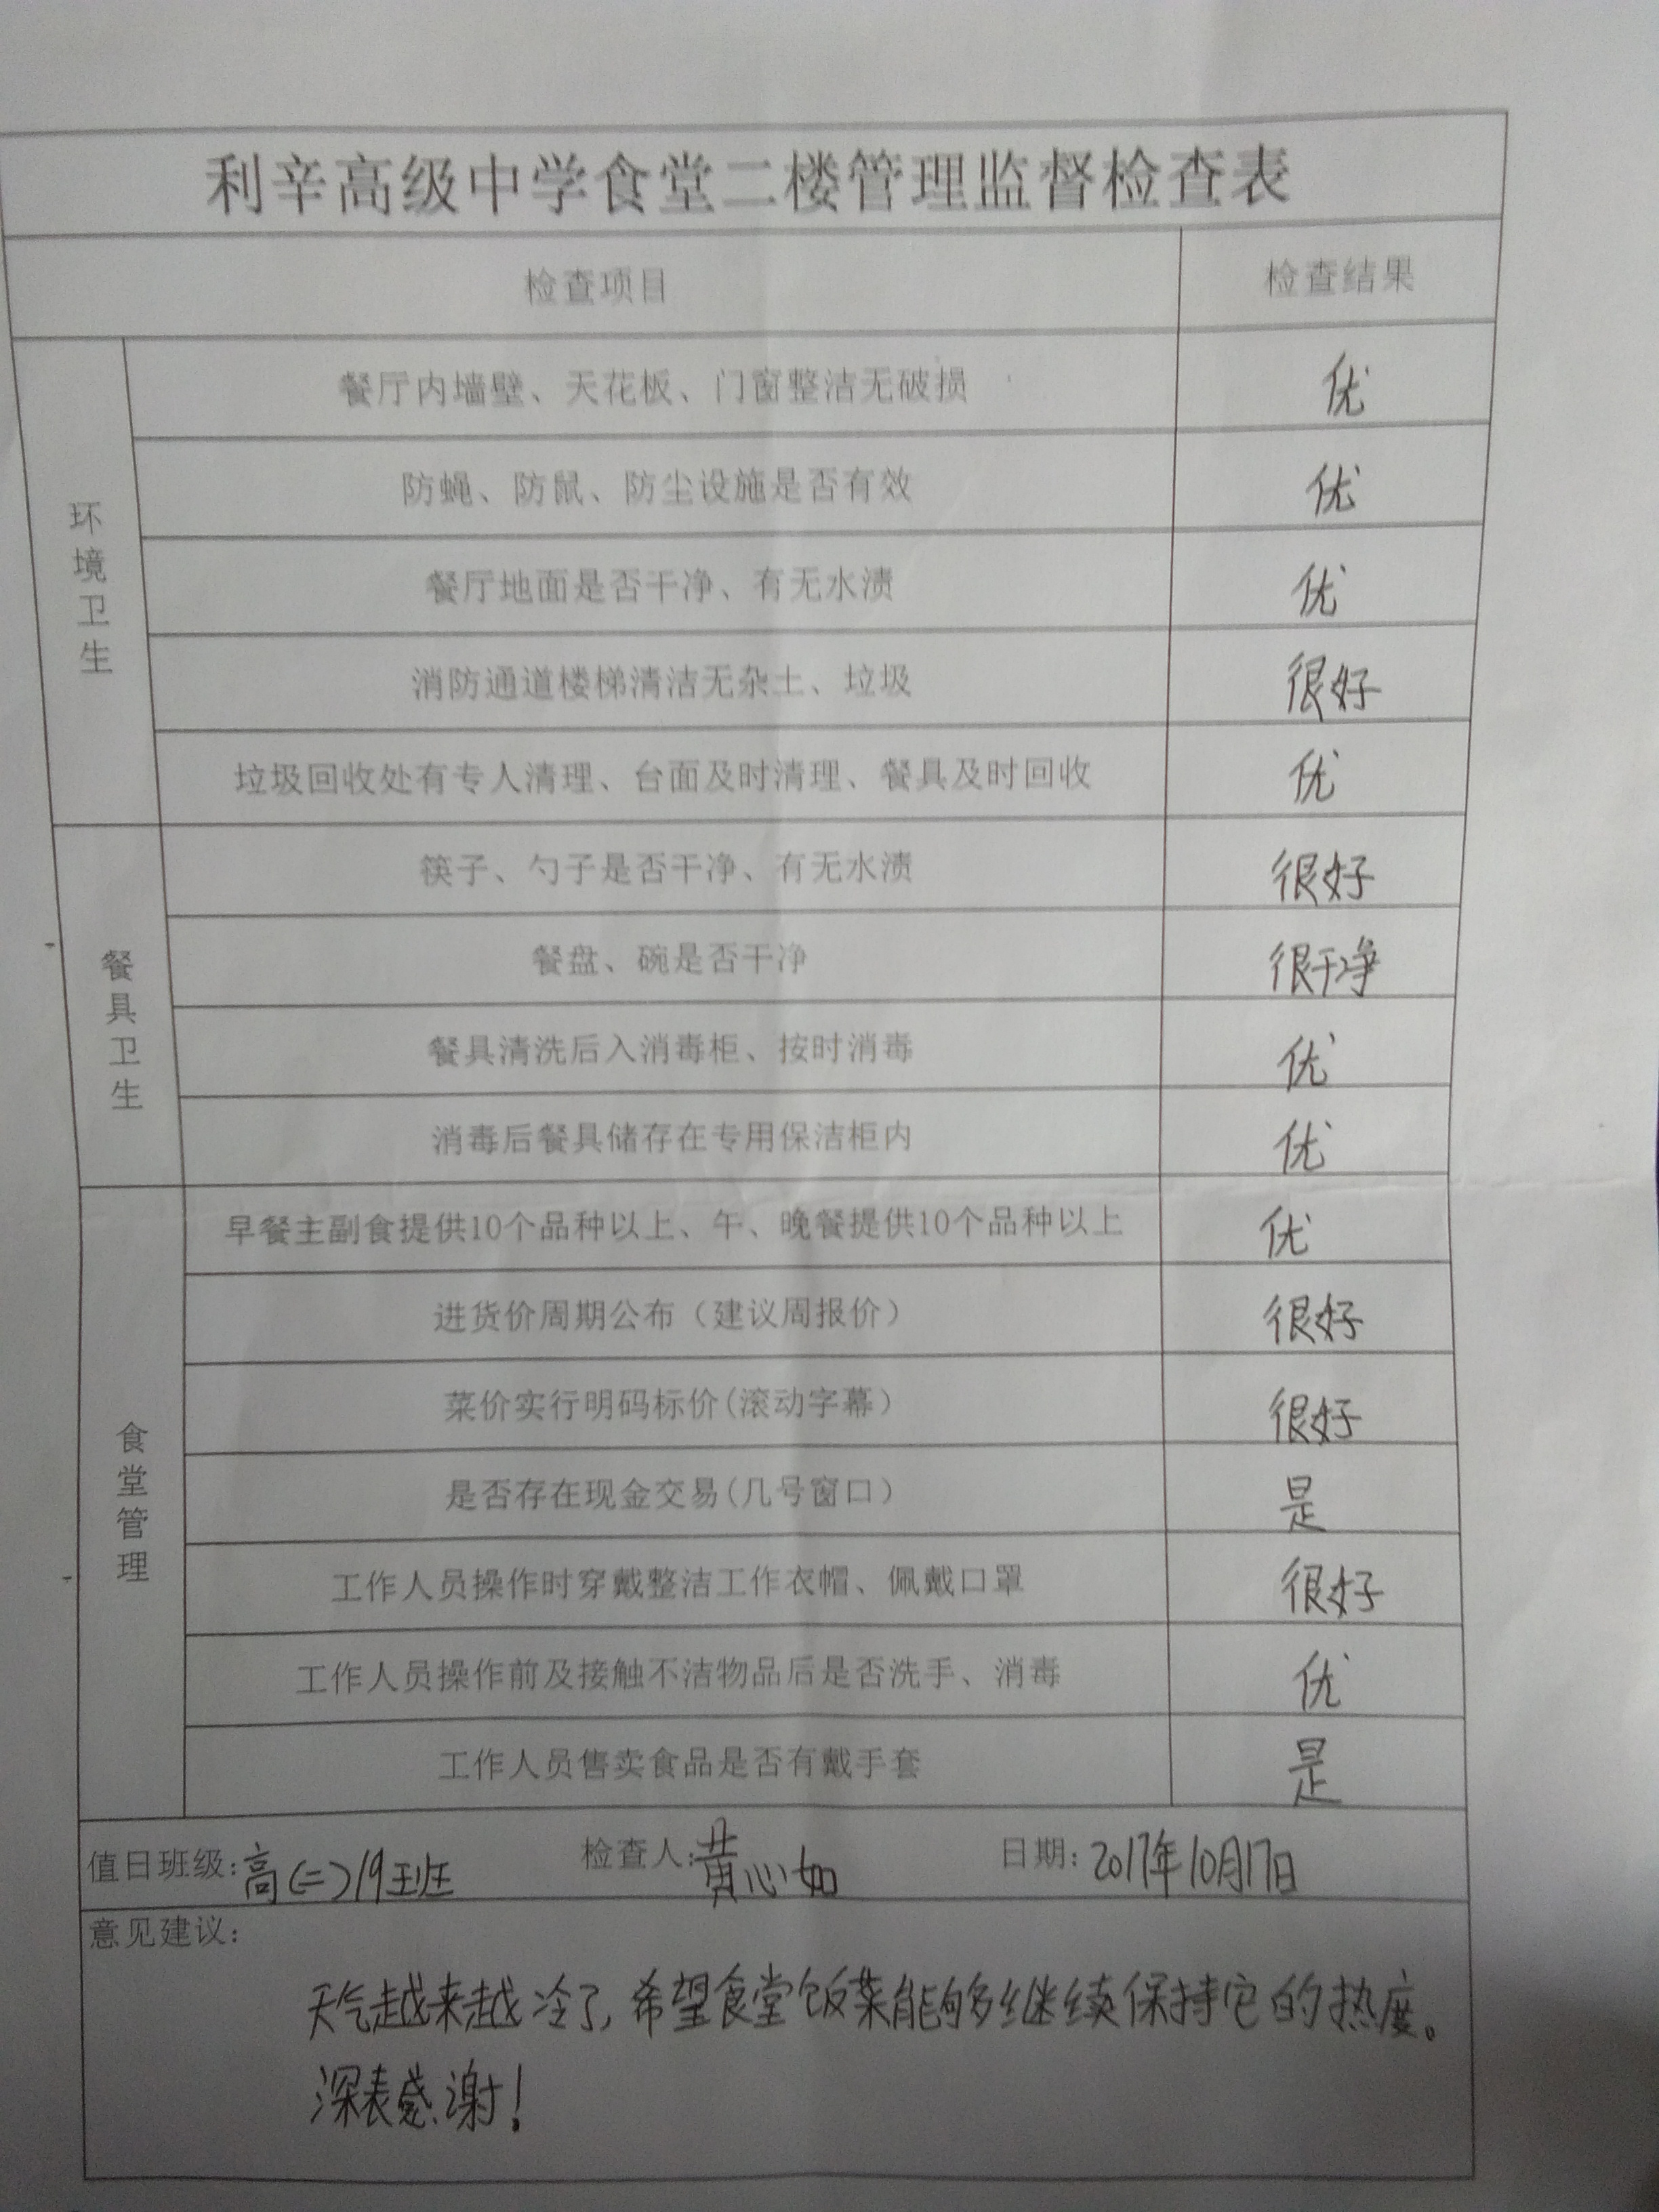 利辛高级中学食堂二楼管理监督检查表
检查项目 检查结果
环境卫生
餐厅内墙壁、天花板、门窗整洁无破损 优
防蝇、防鼠、防尘设施是否有效 优
餐厅地面是否干净、有无水渍 优
消防通道楼梯清洁无杂土、垃圾 很好
垃圾回收处有专人清理、台面及时清理、餐具及时回收 优
餐具卫生
筷子、勺子是否干净、有无水渍 很好
餐盘、碗是否干净 很干净
餐具清洗后入消毒柜、按时消毒 优
消毒后餐具储存在专用保洁柜内 优
食堂管理
早餐主副食提供10个品种以上、午、晚餐提供10个品种以上 优
进货价周期公布（建议周报价） 很好
菜价实行明码标价(滚动字幕） 很好
是否存在现金交易(几号窗口） 是
工作人员操作时穿戴整洁工作衣帽、佩戴口罩 很好
工作人员操作前及接触不洁物品后是否洗手、消毒 优
工作人员售卖食品是否有戴手套 是
值日班级:高(二)19班 检查人:黄心如 日期:2017年10月17日
意见建议:
天气越来越冷了,希望食堂饭菜能够继续保持它的热度。
深表感谢!